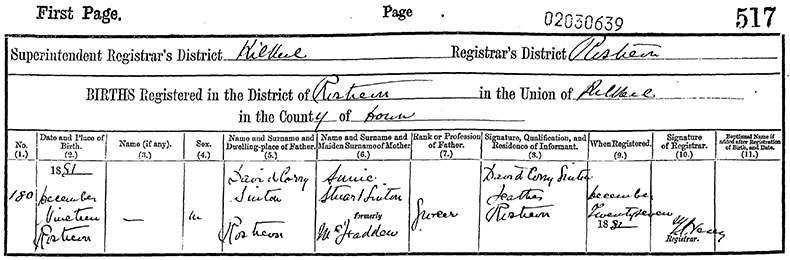 First Page. Page 02030639 517
Superintendent Registrar's District Kilkeel Registrar's District Rostrevor
BIRTHS Registered in the District of Rostrevor in the Union of Kilkeel
in the County of Down
No. (1.) Date and Place of Birth. (2.) Name (if any). (3.) Sex. (4.) Name and Surname and Dwelling-place of Father. (5.) Name and Surname and Maiden Surname of Mother (6.) Rank or Profession of Father. (7.) Signature, Qualification, and Residence of Informant. (8.) When Registered. (9.) Signature of Registrar. (10.) Baptismal Name if added after Registration of Birth, and Date. (11.)
1881 David Corry Annie David Corry Sinton
180 December Sinton Stuart Sinton Father December
Nineteen — M formerly Grocer Rostrevor Twentyseven
Rostrevor Rostrevor McFadden 1881
Registrar.